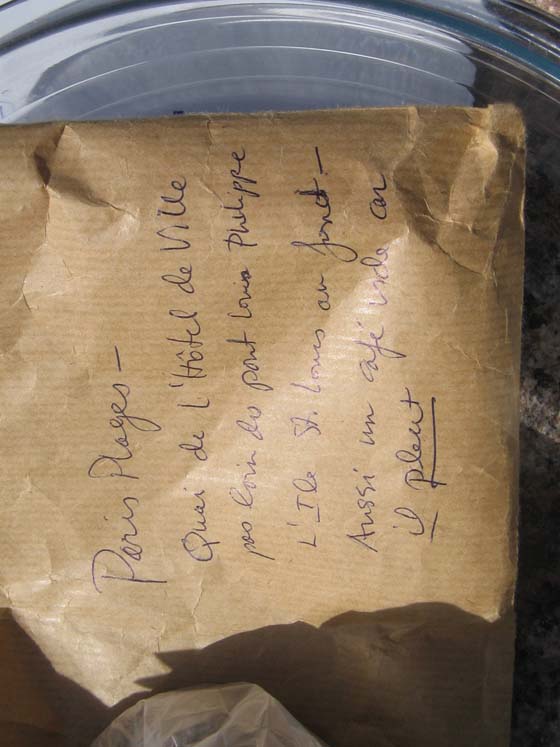 Paris Plages —
Quai de L'Hôtel de Ville
pas loin du pont Louis Philippe
L'Ile St. Louis au fond. —
Aussi un café vide car
il pleut